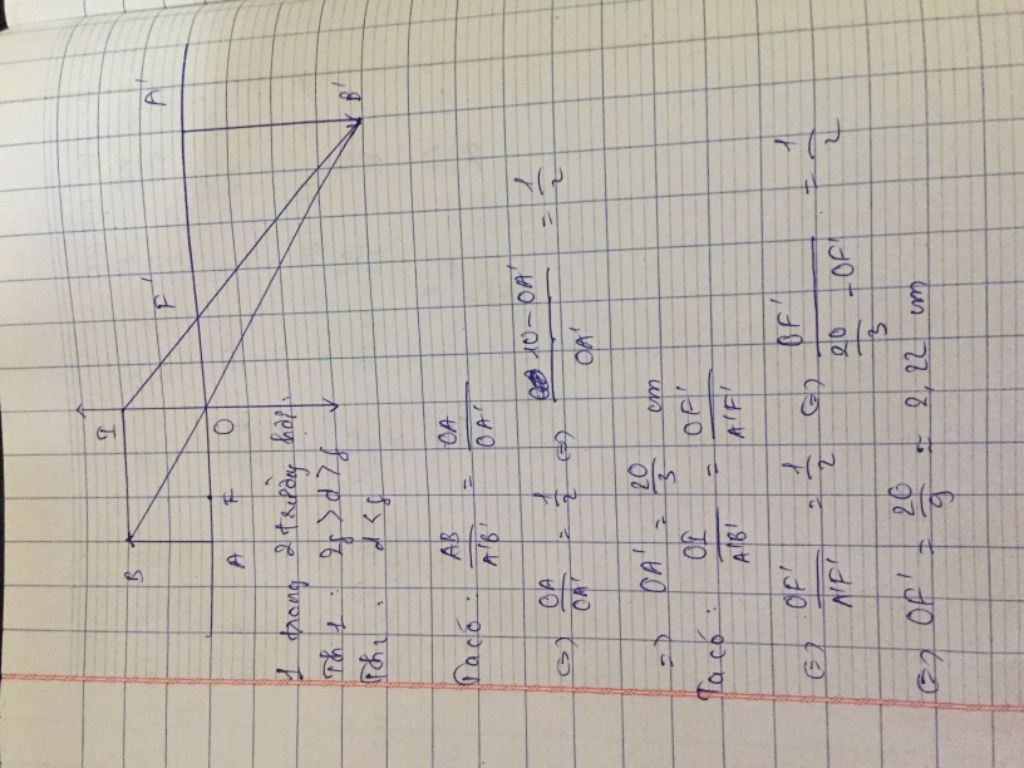 B I
A F O F' A'
B'
1 trong 2 trường hợp:
Th1: 2f > d > f
Th2: d < f
Ta có: AB/A'B' = OA/OA'
(=) OA/OA' = 1/2 (=) 10-OA'/OA' = 1/2
=) OA' = 20/3 cm
Ta có: OI/A'B' = OF'/A'F'
(=) OF'/A'F' = 1/2 (=) OF'/20/3 - OF' = 1/2
(=) OF' = 20/9 = 2,22 cm